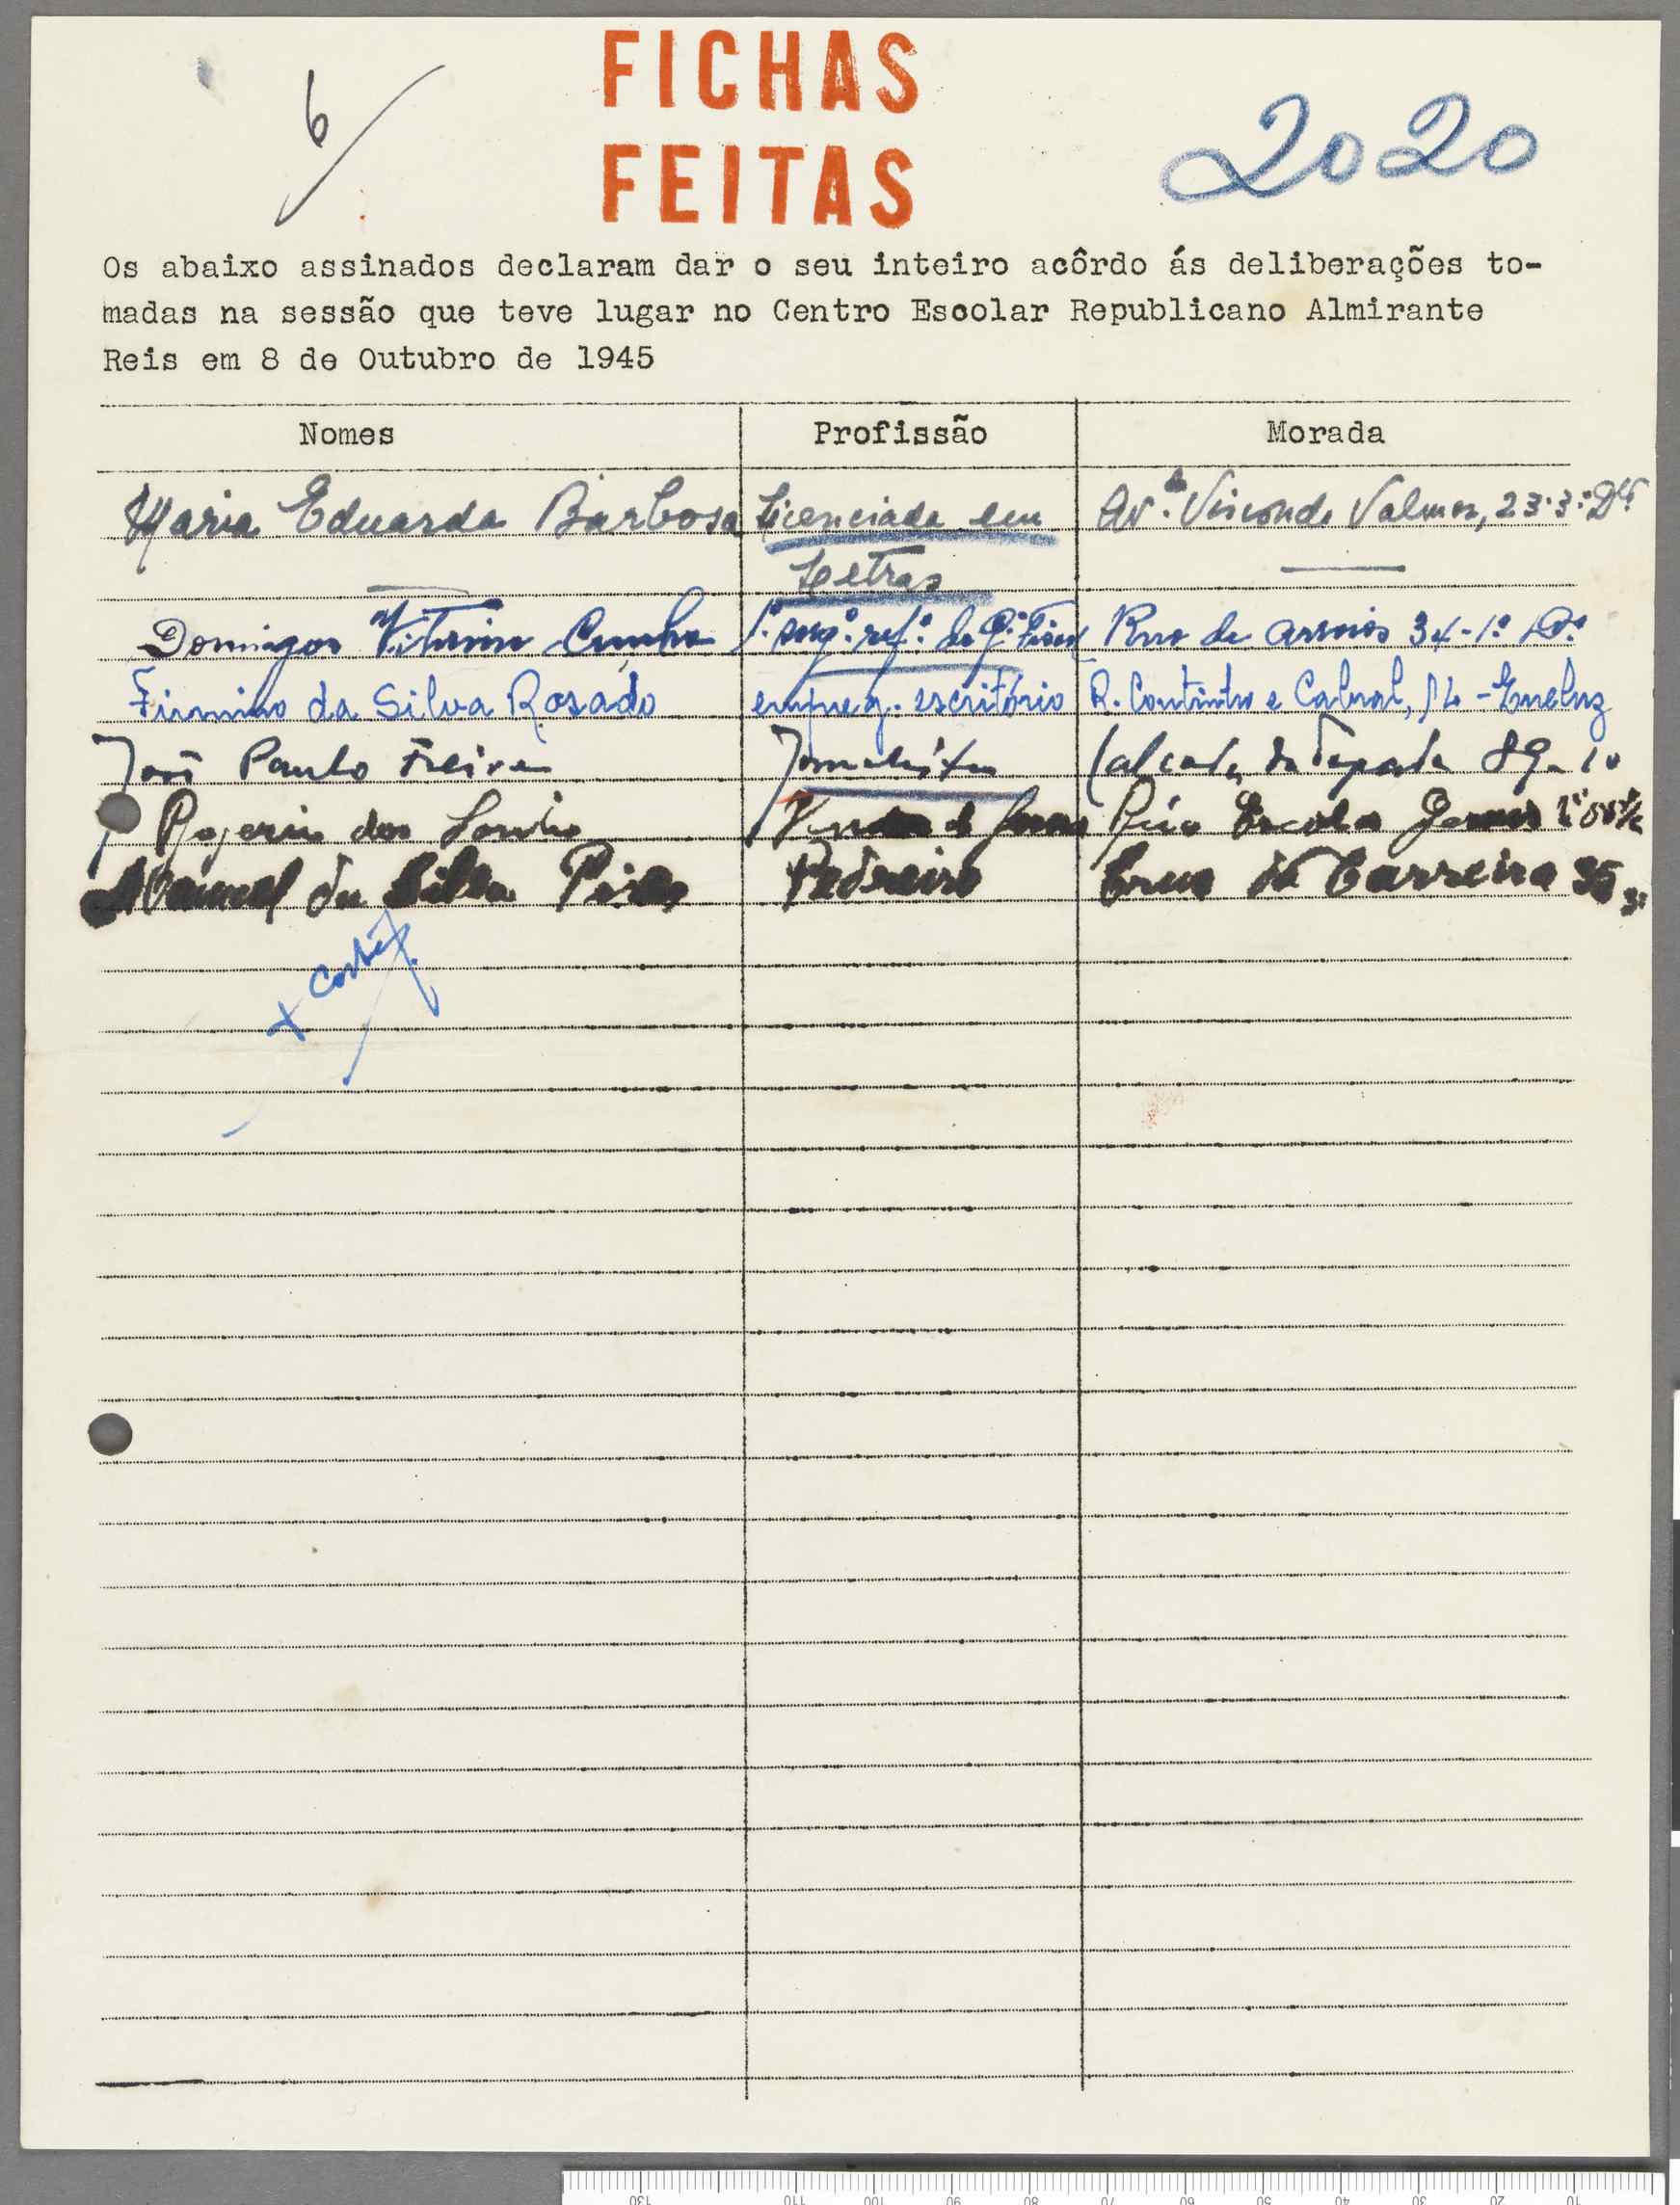 6
FICHAS
FEITAS
2020
Os abaixo assinados declaram dar o seu inteiro acôrdo ás deliberações to-
madas na sessão que teve lugar no Centro Escolar Republicano Almirante
Reis em 8 de Outubro de 1945
Nomes Profissão Morada
Maria Eduarda Barbosa Licenciada em Av.ª Visconde Valmor, 23-3.º D.to
Letras
Domingos Vitorino Cunha 1.º sarg.º ref.º da G. Fiscal Rua de Arroios 34-1.º D.º
Firmino da Silva Rosado empreg. escritório R. Coutinho e Cabral, - Queluz
José Paulo Freire Jornalista Calçada da Tapada 89-1º
Rogerio dos Santos Rua Escolas Gerais
Manuel da Silva Pires Pedreiro Cruz da Carreira 35
x
130 110 100 90 80 70 60 50 40 30 20 10